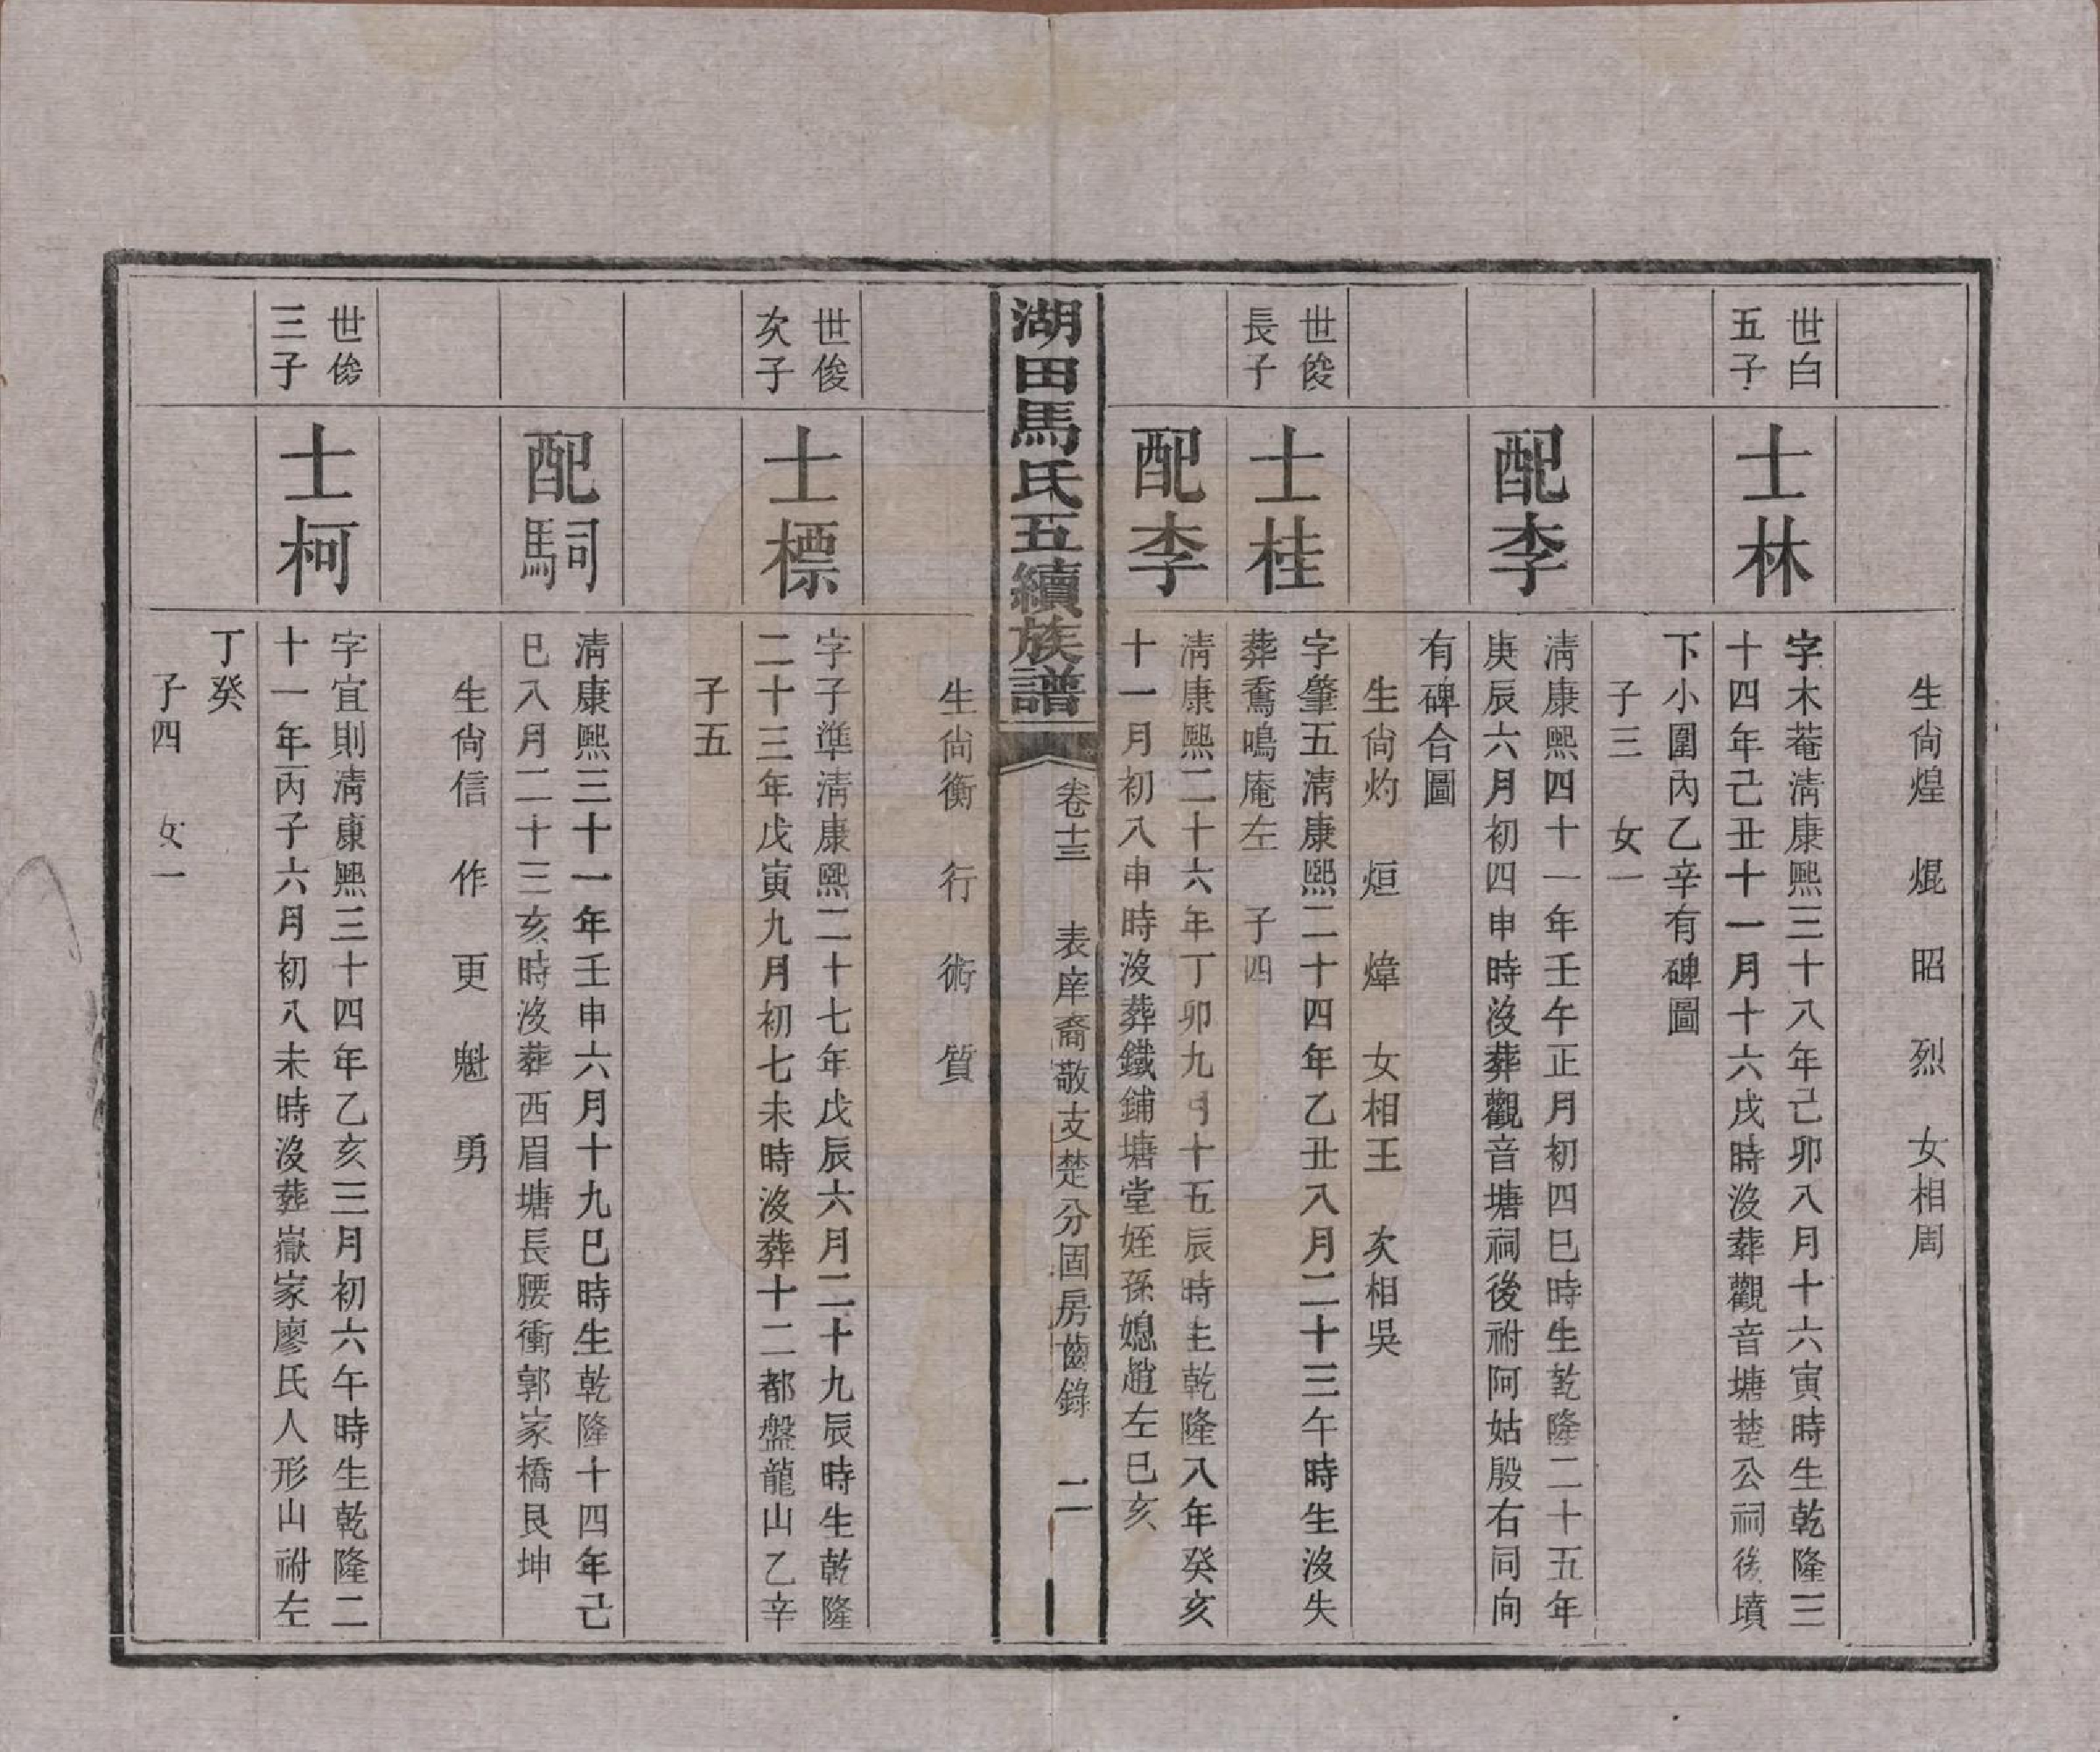 生尙煌　焜　昭　烈　女相周
世白
五子
士林
字木菴淸康熙三十八年己卯八月十六寅時生乾隆三
十四年己丑十一月十六戌時沒葬觀音塘楚公祠後墳
下小圍內乙辛有碑圖
子三　女一
配李
淸康熙四十一年壬午正月初四巳時生乾隆二十五年
庚辰六月初四申時沒葬觀音塘祠後祔阿姑殷右同向
有碑合圖
生尙灼　烜　煒　女相王　次相吳
世俊
長子
士桂
字肇五淸康熙二十四年乙丑八月二十三午時生沒失
葬鴌鳴庵左　子四
配李
淸康熙二十六年丁卯九月十五辰時生乾隆八年癸亥
十一月初八申時沒葬鐵鋪塘堂姪孫媳趙左巳亥
湖田馬氏五續族譜
卷十三　表庠裔敬支楚分固房齒錄　二
生尙衡　行　術　質
世俊
次子
士標
字子準淸康熙二十七年戊辰六月二十九辰時生乾隆
二十三年戊寅九月初七未時沒葬十二都盤龍山乙辛
子五
配駉
淸康熙三十一年壬申六月十九巳時生乾隆十四年己
巳八月二十三亥時沒葬西眉塘長腰衝郭家橋艮坤
生尙信　作　更　魁　勇
世俊
三子
士柯
字宜則淸康熙三十四年乙亥三月初六午時生乾隆二
十一年丙子六月初八未時沒葬嶽家廖氏人形山祔左
丁癸
子四　女一